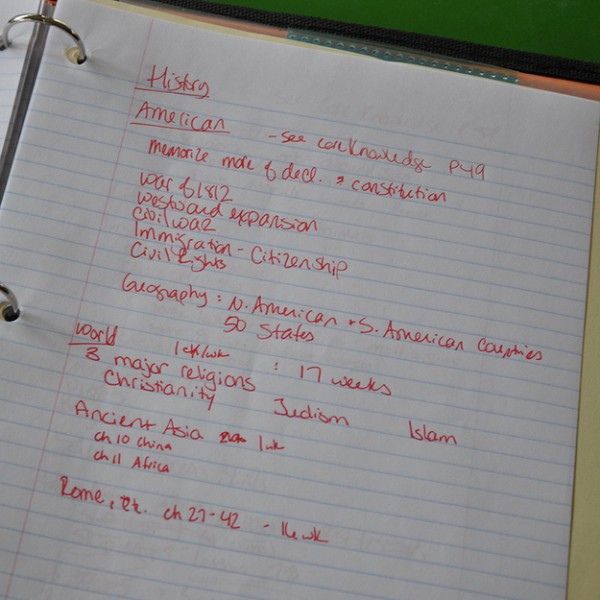 History
American - see core Knowledge P49
memorize more of decl. & constitution
War of 1812
Westward expansion
Civil War
Immigration - Citizenship
Civil Rights
Geography : N. American + S. American Countries
50 States
World 1 ch/wk : 17 weeks
3 major religions
Christianity Judism Islam
Ancient Asia 1 wk
ch 10 China
ch 11 Africa
Rome, etc. ch 27-42 - 16 wk